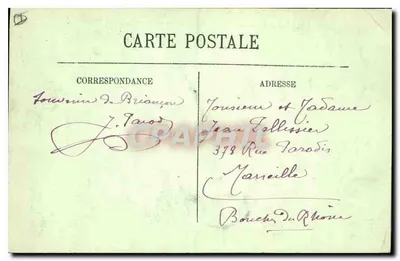 CARTE POSTALE
CORRESPONDANCE
Souvenir de Briançon
J. Parod
ADRESSE
Monsieur et Madame
Jean Pellissier
378 Rue Paradis
Marseille
Bouches du Rhône